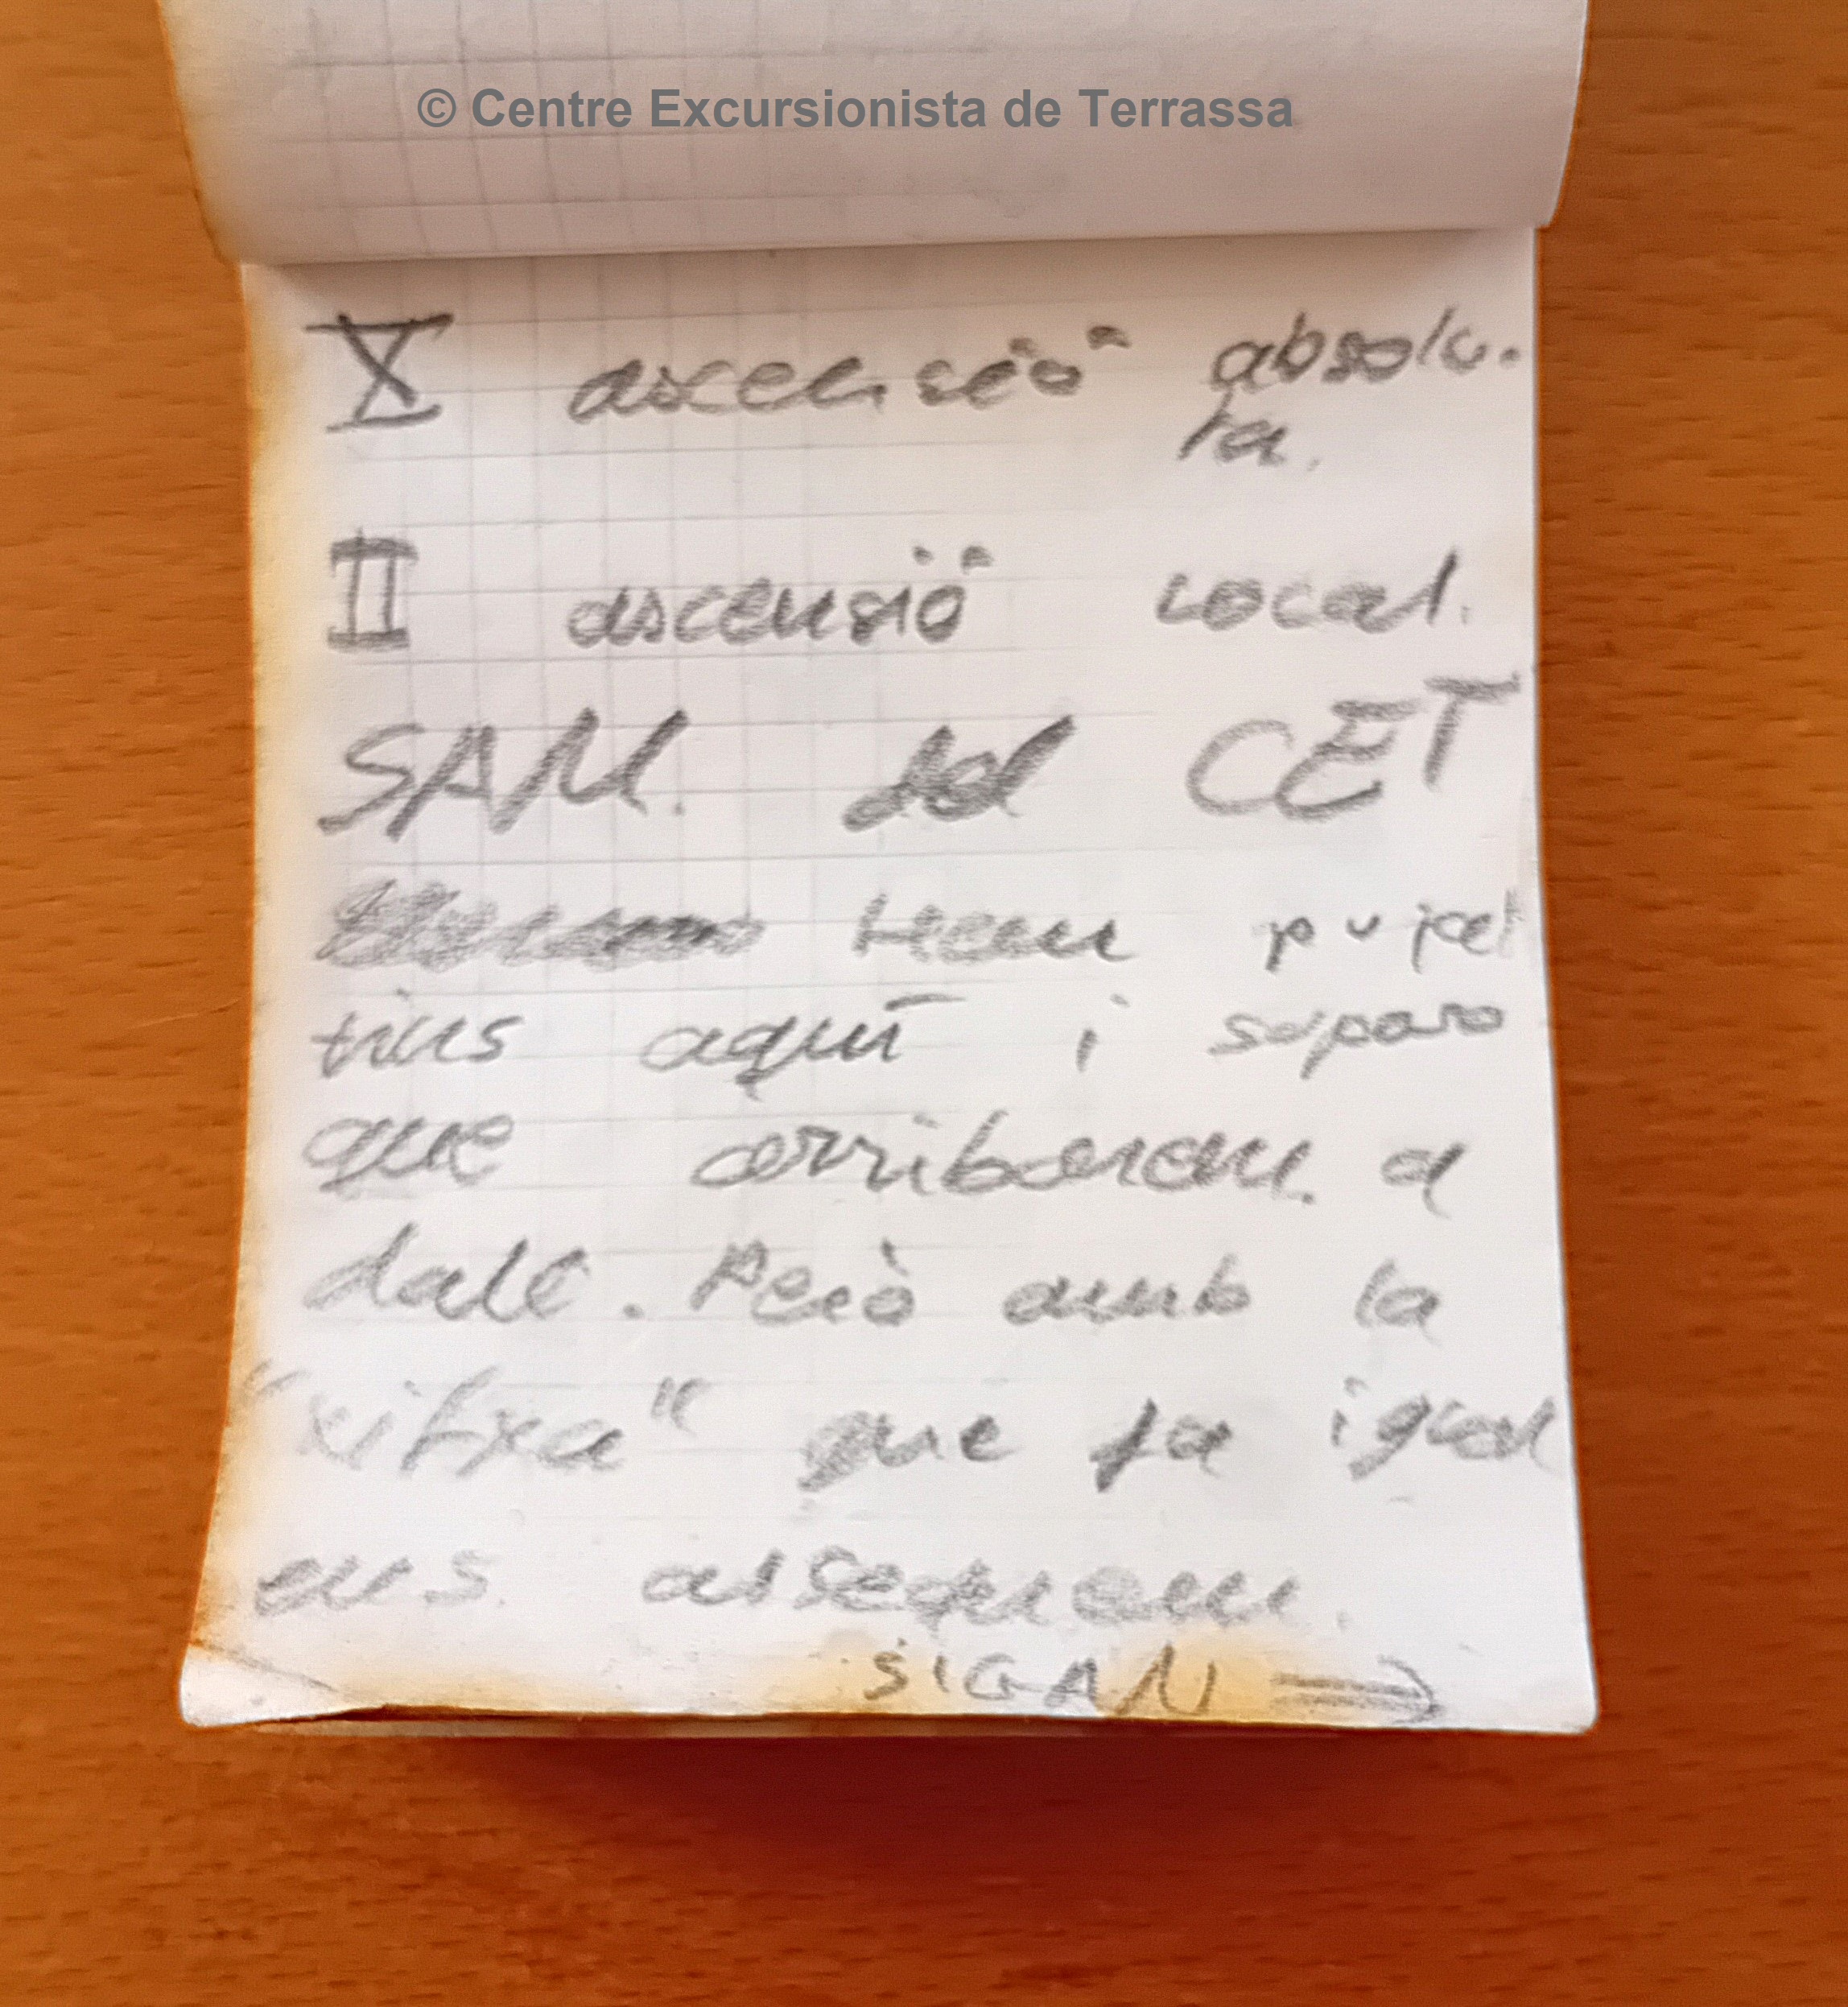 © Centre Excursionista de Terrassa
X ascensió absolu-
ta.
II ascensió local.
SAM. del CET
Hem pujat
fins aquí i suposo
que arribarem a
dalt. Però amb la
"xitxa" que fa igual
ens
SIGAN ⇒